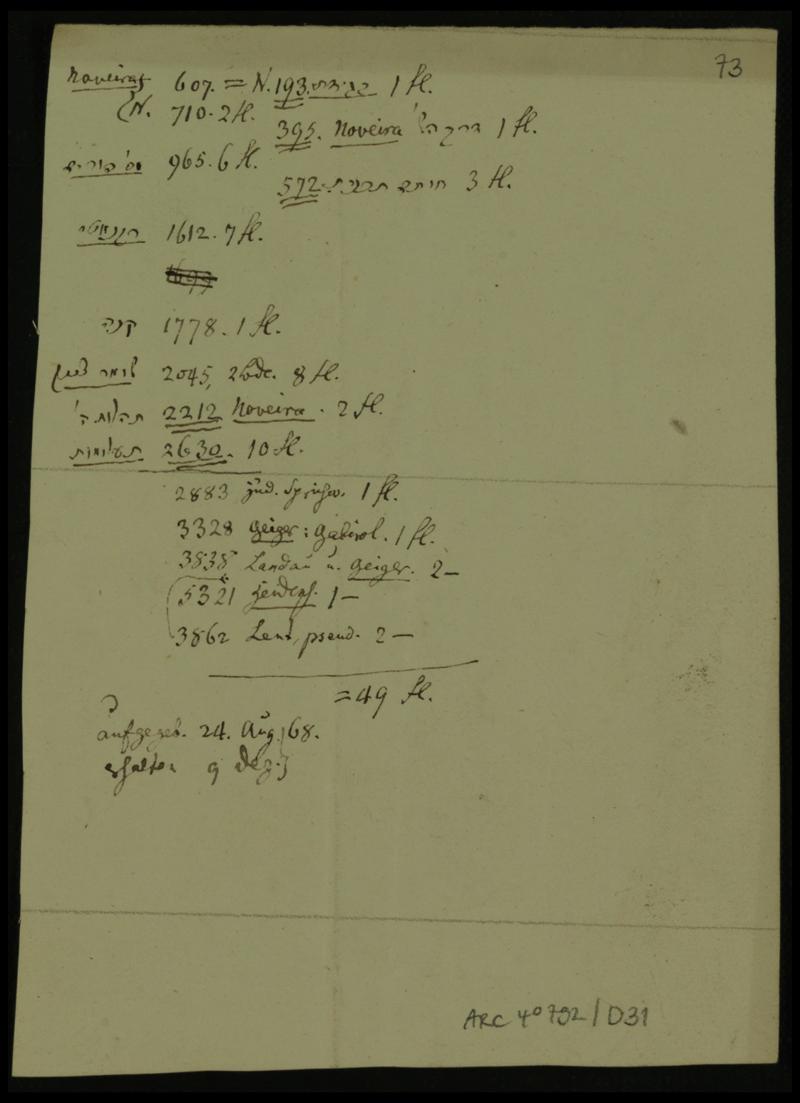 73
Noveiras 607. = N. 193. 1 fl.
N. 710. 2 fl.
395. Noveira דרך ה' 1 fl.
965. 6 fl.
572. חותם תכנית 3 fl.
1612. 7 fl.
קנה 1778. 1 fl.
2045, 2 bde. 8 fl.
תהלות ה' 2212 Noveira. 2 fl.
תעלומות 2630. 10 fl.
2883 jüd. Sprichw. 1 fl.
3328 Geiger: Gabirol. 1 fl.
3838 Landau u. Geiger. 2 —
5321 1 —
3862 pseud. 2 —
= 49 fl.
aufgegeb. 24. Aug. 68.
erhalten 9 Dez.
ARC 4° 792 / D31